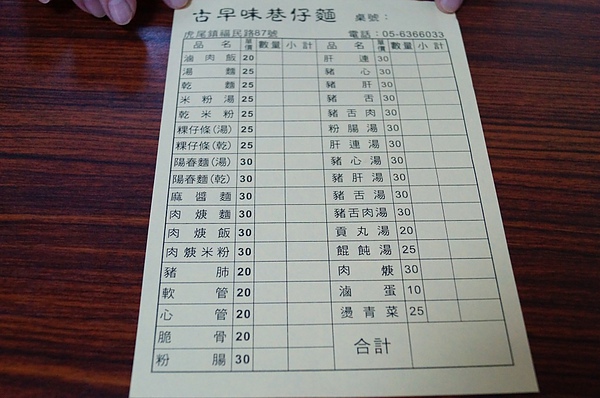 古早味巷仔麵 桌號：
虎尾鎮福民路87號 電話：05-6366033
品名 單價 數量 小計 品名 單價 數量 小計
滷肉飯 20 肝連 30
湯麵 25 豬心 30
乾麵 25 豬肝 30
米粉湯 25 豬舌 30
乾米粉 25 豬舌肉 30
粿仔條(湯) 25 粉腸湯 30
粿仔條(乾) 25 肝連湯 30
陽春麵(湯) 30 豬心湯 30
陽春麵(乾) 30 豬肝湯 30
麻醬麵 30 豬舌湯 30
肉焿麵 30 豬舌肉湯 30
肉焿飯 30 貢丸湯 20
肉焿米粉 30 餛飩湯 25
豬肺 20 肉焿 30
軟管 20 滷蛋 10
心管 20 燙青菜 25
脆骨 20 合計
粉腸 30